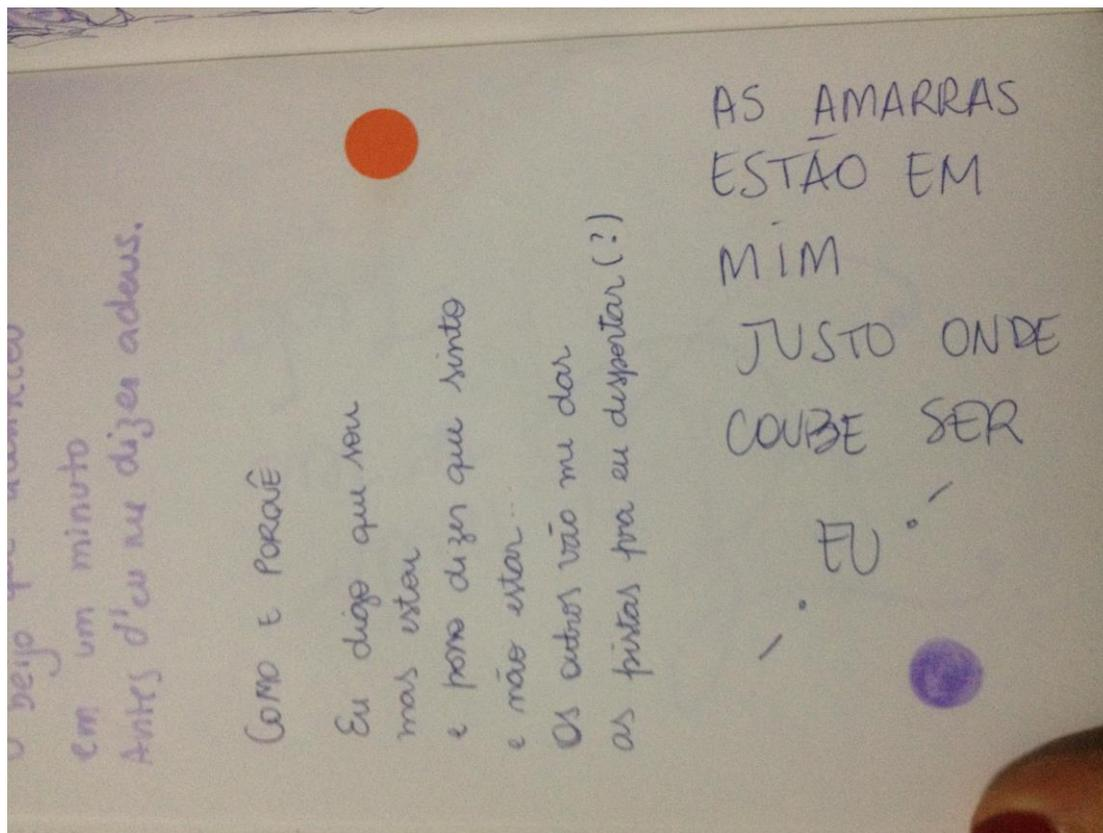 beijo
em um minuto
Antes d'eu me dizer adeus.
COMO E PORQUÊ
Eu digo que sou
mas estou
e posso dizer que sinto
e não estar...
Os outros vão me dar
as pistas pra eu despertar (?)
AS AMARRAS
ESTÃO EM
MIM
JUSTO ONDE
COUBE SER
EU